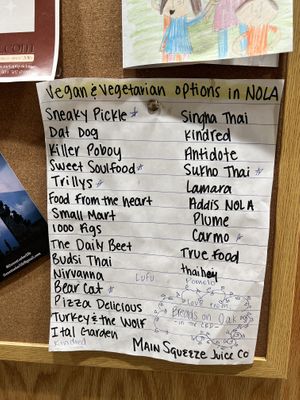 Vegan & Vegetarian options in NOLA
Sneaky Pickle *
Dat Dog
Killer Poboy
Sweet Soulfood *
Trillys *
Food from the heart
Small Mart
1000 Figs
The Daily Beet
Budsi Thai
Nirvanna
LUFU
Bear Cat *
Pizza Delicious
Turkey & the Wolf
Ital Garden
Kindred
Singha Thai
Kindred
Antidote
Sukho Thai *
Lamara
Addis NOLA
Plume
Carmo *
True Food
thaihey
Pomelo
Breads on Oak
Main Squeeze Juice Co
.com